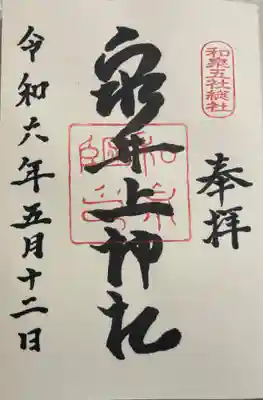 奉拝
和泉五社総社
泉井上神社
令和六年五月十二日